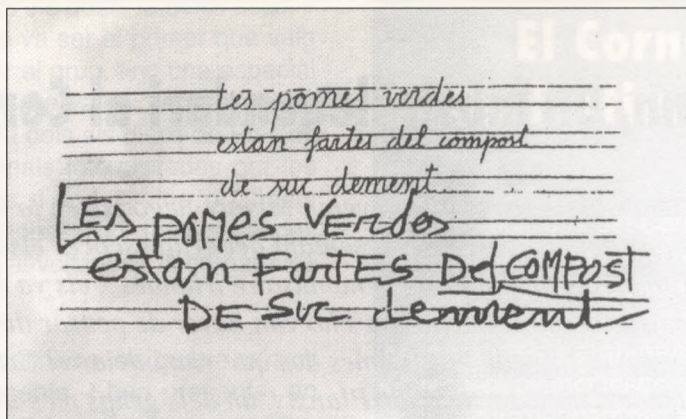 El Corn
Les pomes verdes
estan fartes del compost
de suc dement
LES pOMes VErdes
estan FartES Del COMPOST
DE Suc dement